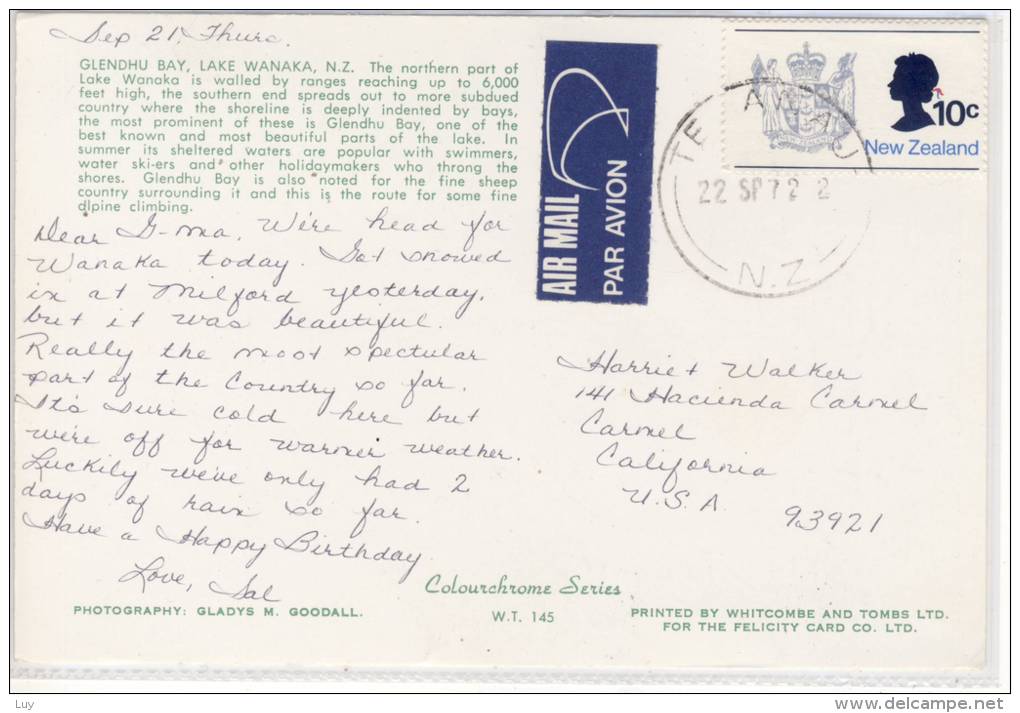 Sep 21, Thurs.
GLENDHU BAY, LAKE WANAKA, N.Z. The northern part of
Lake Wanaka is walled by ranges reaching up to 6,000
feet high, the southern end spreads out to more subdued
country where the shoreline is deeply indented by bays,
the most prominent of these is Glendhu Bay, one of the
best known and most beautiful parts of the lake. In
summer its sheltered waters are popular with swimmers,
water ski-ers and other holidaymakers who throng the
shores. Glendhu Bay is also noted for the fine sheep
country surrounding it and this is the route for some fine
alpine climbing.
Dear G-ma. We're head for
Wanaka today. Got snowed
in at Milford yesterday,
but it was beautiful.
Really the most spectular
part of the Country so far.
It's sure cold here but
we're off for warmer weather.
Luckily we've only had 2
days of rain so far.
Have a Happy Birthday
Love, Sal
PHOTOGRAPHY: GLADYS M. GOODALL.
AIR MAIL
PAR AVION
TE ANAU
22 SP 72 2
N.Z
10c
New Zealand
Harriet Walker
141 Hacienda Carmel
Carmel
California
U.S.A. 93921
Colourchrome Series
W.T. 145
PRINTED BY WHITCOMBE AND TOMBS LTD.
FOR THE FELICITY CARD CO. LTD.
Luy
www.delcampe.net